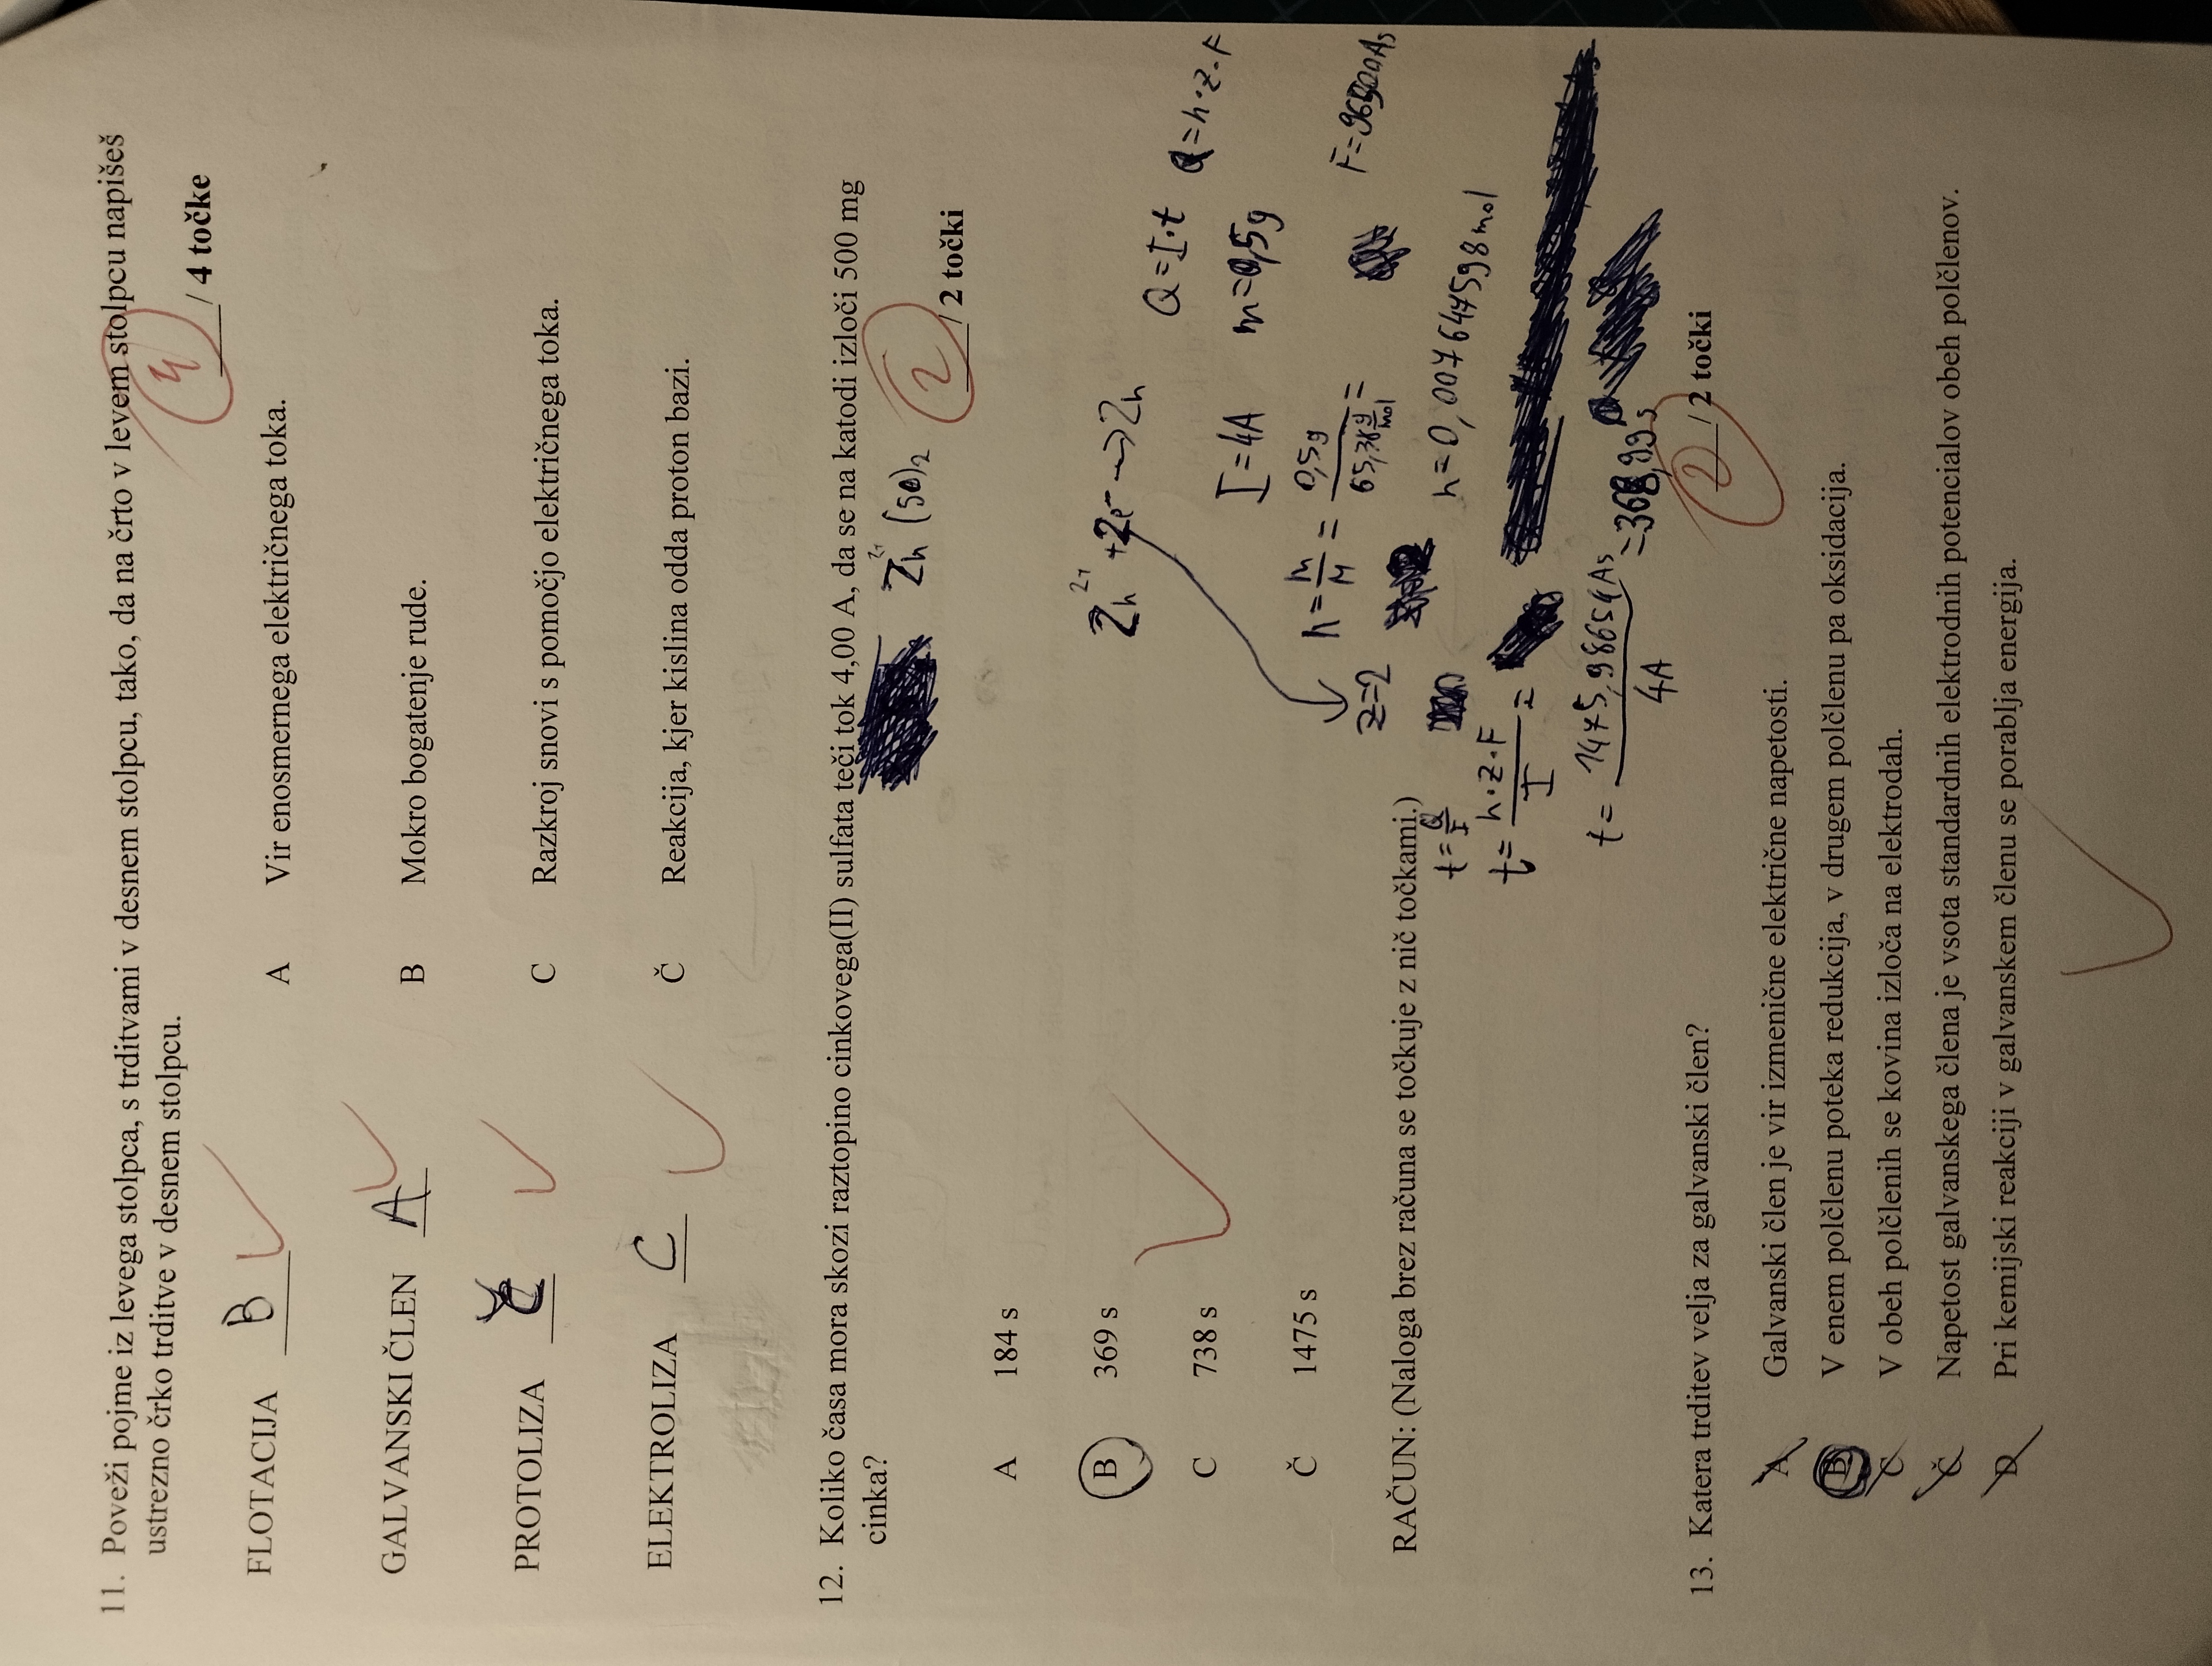 11. Poveži pojme iz levega stolpca, s trditvami v desnem stolpcu, tako, da na črto v levem stolpcu napišeš
ustrezno črko trditve v desnem stolpcu.
4 / 4 točke
FLOTACIJA B
A Vir enosmernega električnega toka.
GALVANSKI ČLEN A
B Mokro bogatenje rude.
PROTOLIZA Č
C Razkroj snovi s pomočjo električnega toka.
ELEKTROLIZA C
Č Reakcija, kjer kislina odda proton bazi.
12. Koliko časa mora skozi raztopino cinkovega(II) sulfata teči tok 4,00 A, da se na katodi izloči 500 mg
cinka?
Zn²⁺ (SO)₂
2 / 2 točki
A 184 s
B 369 s
C 738 s
Č 1475 s
Zn²⁺ + 2e⁻ → Zn
Q = I·t Q = n·z·F
I = 4A m = 0,5g
n = m/M = 0,5g / 65,38 g/mol =
z=2
F = 96500As
RAČUN: (Naloga brez računa se točkuje z nič točkami.)
t = Q/I
n = 0,007647598mol
t = n·z·F / I =
t = 1475,98654As / 4A = 368,99s
13. Katera trditev velja za galvanski člen?
2 / 2 točki
A Galvanski člen je vir izmenične električne napetosti.
B V enem polčlenu poteka redukcija, v drugem polčlenu pa oksidacija.
C V obeh polčlenih se kovina izloča na elektrodah.
Č Napetost galvanskega člena je vsota standardnih elektrodnih potencialov obeh polčlenov.
D Pri kemijski reakciji v galvanskem členu se porablja energija.